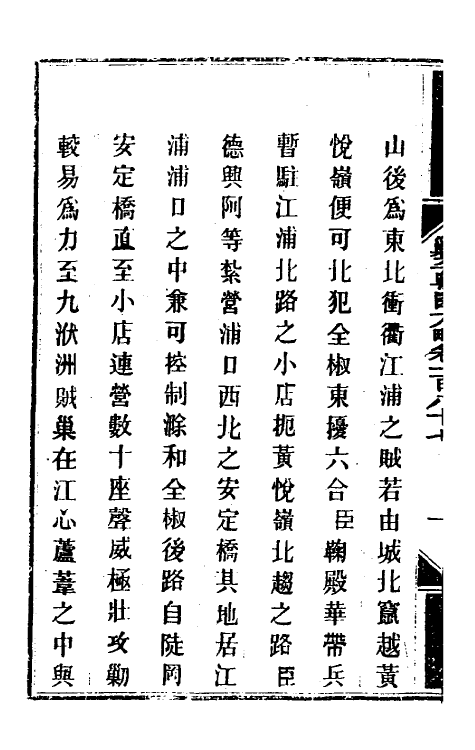 山後爲東北衝衢江浦之賊若由城北竄越黃
悅嶺便可北犯全椒東擾六合臣鞠殿華帶兵
暫駐江浦北路之小店扼黃悅嶺北趨之路臣
德興阿等紮營浦口西北之安定橋其地居江
浦浦口之中兼可控制滁和全椒後路自陡岡
安定橋直至小店連營數十座聲威極壯攻勦
較易爲力至九洑洲賊巢在江心蘆葦之中與